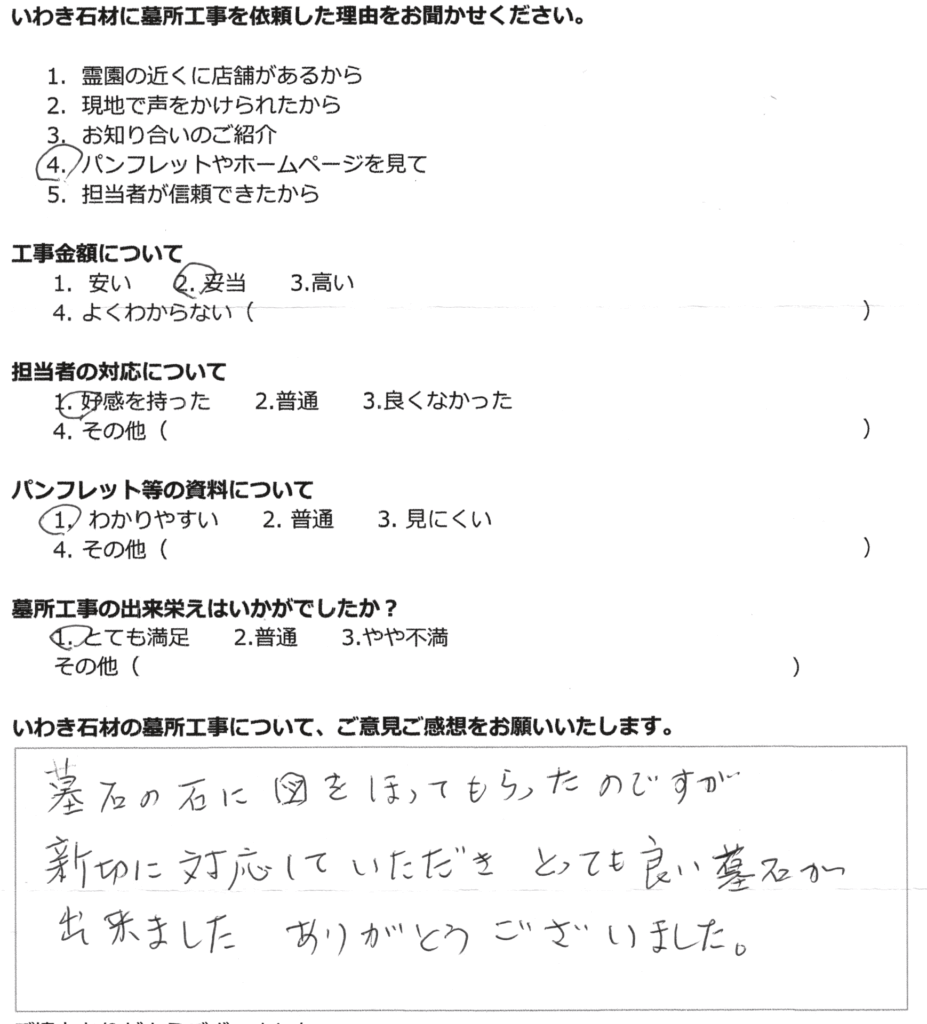 いわき石材に墓所工事を依頼した理由をお聞かせください。
1. 霊園の近くに店舗があるから
2. 現地で声をかけられたから
3. お知り合いのご紹介
4. パンフレットやホームページを見て
5. 担当者が信頼できたから
工事金額について
1. 安い 2. 妥当 3.高い
4. よくわからない（ ）
担当者の対応について
1. 好感を持った 2.普通 3.良くなかった
4. その他（ ）
パンフレット等の資料について
1. わかりやすい 2. 普通 3. 見にくい
4. その他（ ）
墓所工事の出来栄えはいかがでしたか？
1. とても満足 2.普通 3.やや不満
その他（ ）
いわき石材の墓所工事について、ご意見ご感想をお願いいたします。
墓石の石に図をほってもらったのですが
新切に対応していただき とっても良い墓石が
出来ました ありがとうございました。